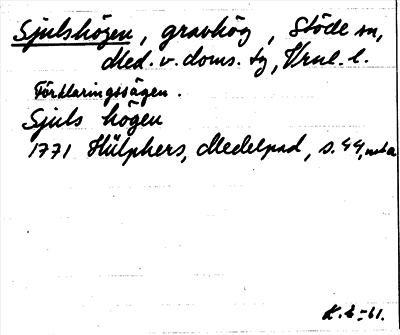 Sjulshögen, gravhög, Stöde sn,
Med. v. doms. tg, Vrnl. l.
Förklaringssägen.
Sjuls högen
1771 Hülphers, Medelpad, s. 44, not a
K. L-61.